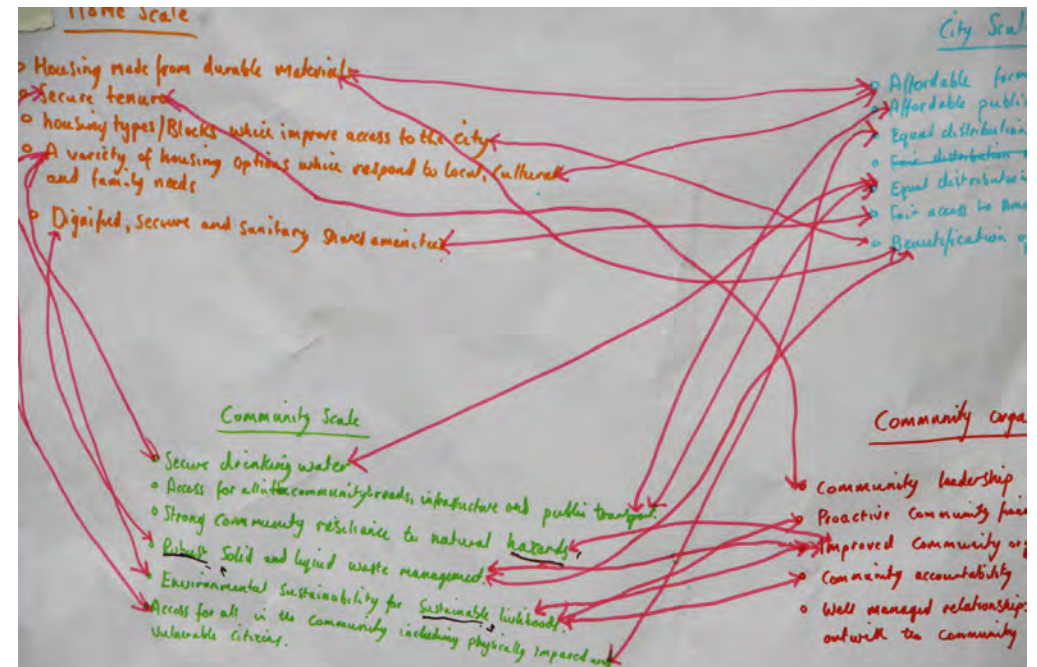 Home Scale
Housing made from durable materials
Secure tenure
housing types/Blocks which improve access to the city
A variety of housing options which respond to local, cultural
and family needs
Dignified, secure and sanitary shared amenities
City Scal
Affordable form
Affordable publi
Equal distribution
Fair distribution
Equal distribution
Fair access to
Beautification o
Community Scale
Secure drinking water
Access for all in the community: roads, infrastructure and public transport.
Strong community resiliance to natural hazards,
Robust, Solid and liquid waste management
Environmental Sustainability for Sustainable, livlihoods.
Access for all in the community including physically impared and
Vulnerable citizens.
Community orga
Community leadership
Proactive Community
Improved Community or
Community accountability
Well managed relationships
outwith the community